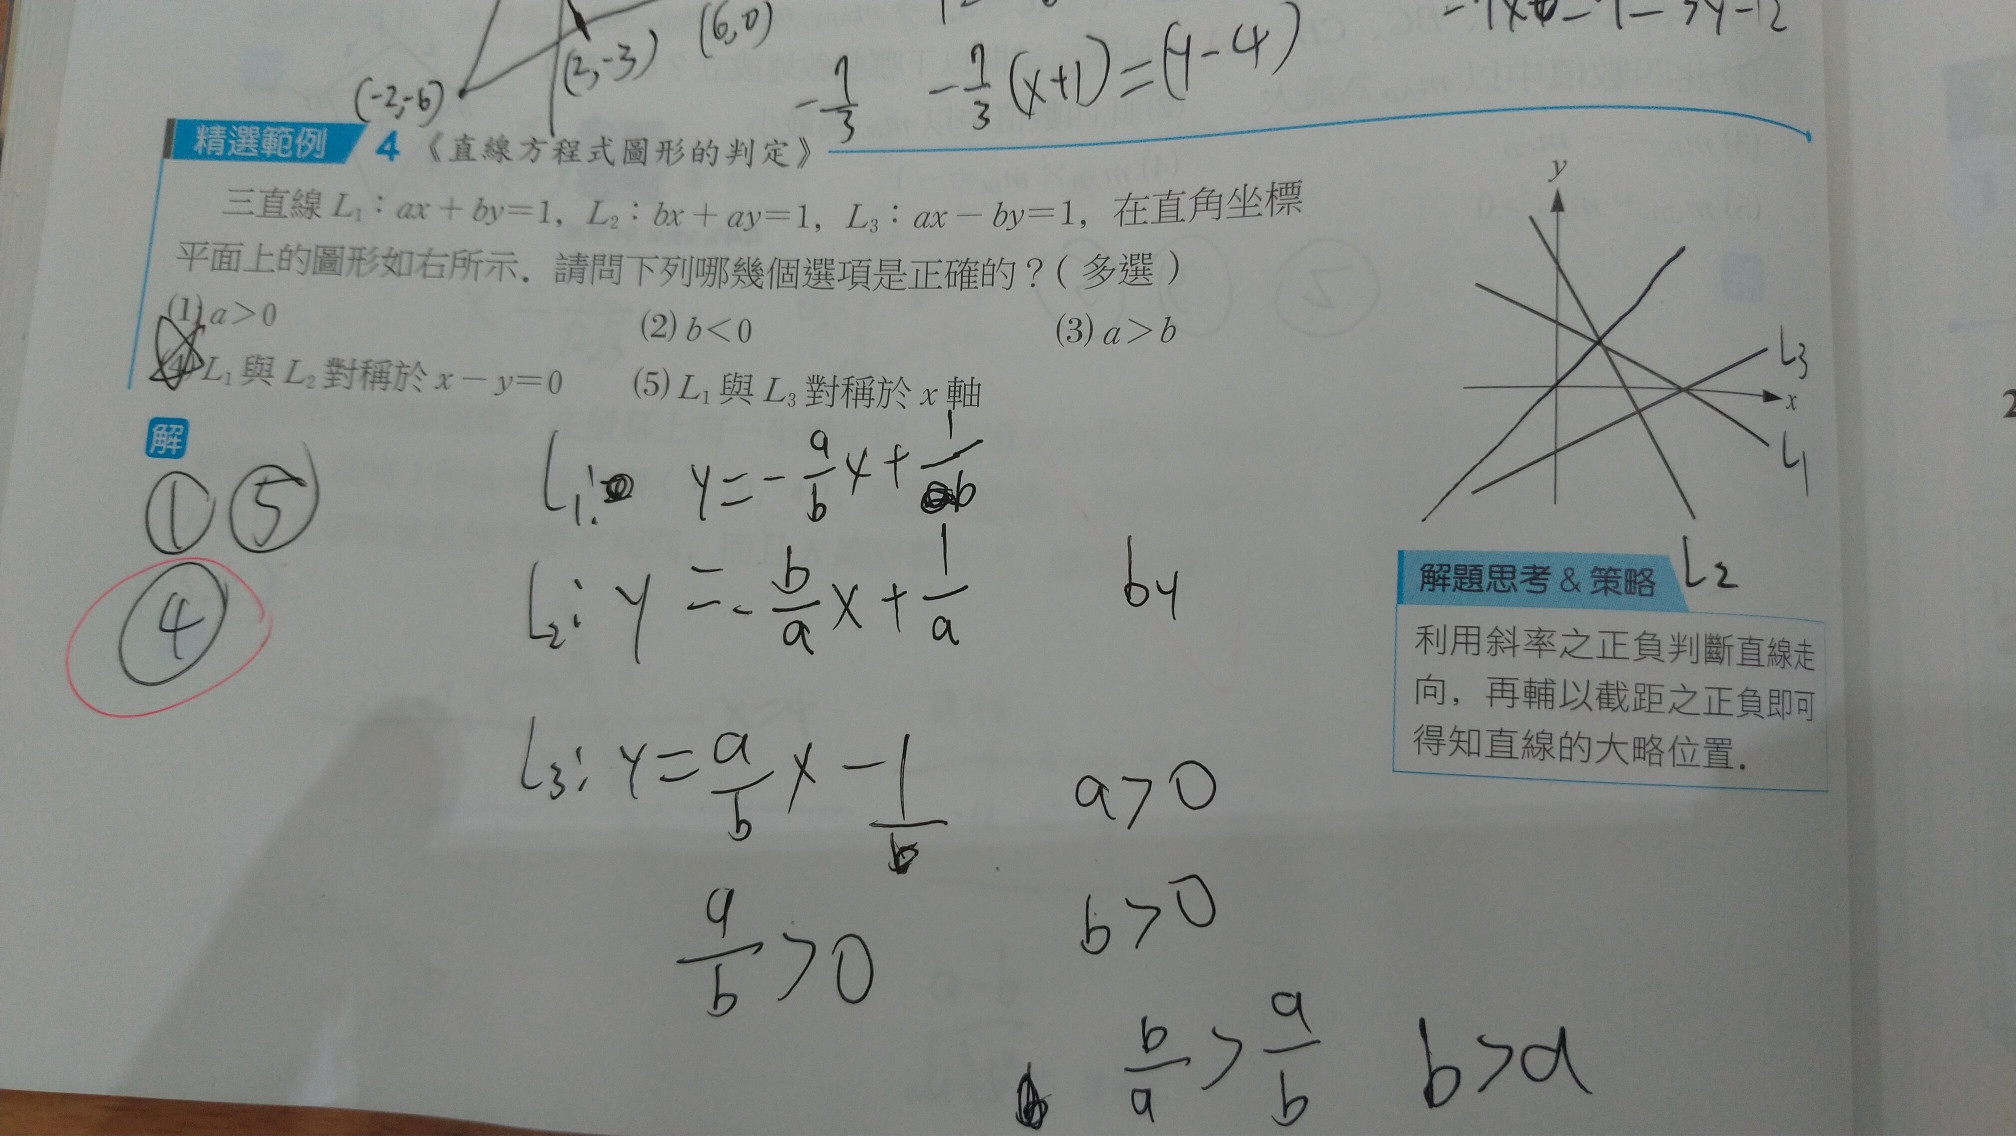 (6,0)
(2,-3)
(-2,-6)
-7/3
-7/3(x+1)=(y-4)
精選範例 4 《直線方程式圖形的判定》
三直線 L₁：ax+by=1，L₂：bx+ay=1，L₃：ax-by=1，在直角坐標
平面上的圖形如右所示．請問下列哪幾個選項是正確的？(多選)
(1) a>0 (2) b<0 (3) a>b
(4) L₁ 與 L₂ 對稱於 x-y=0 (5) L₁ 與 L₃ 對稱於 x 軸
y
x
L3
L1
L2
解
① ⑤
④
L₁: y=-a/b x+1/b
L₂: y=-b/a x+1/a
by
L₃: y=a/b x-1/b
a>0
a/b>0
b>0
b/a>a/b b>a
解題思考 & 策略
利用斜率之正負判斷直線走
向，再輔以截距之正負即可
得知直線的大略位置．